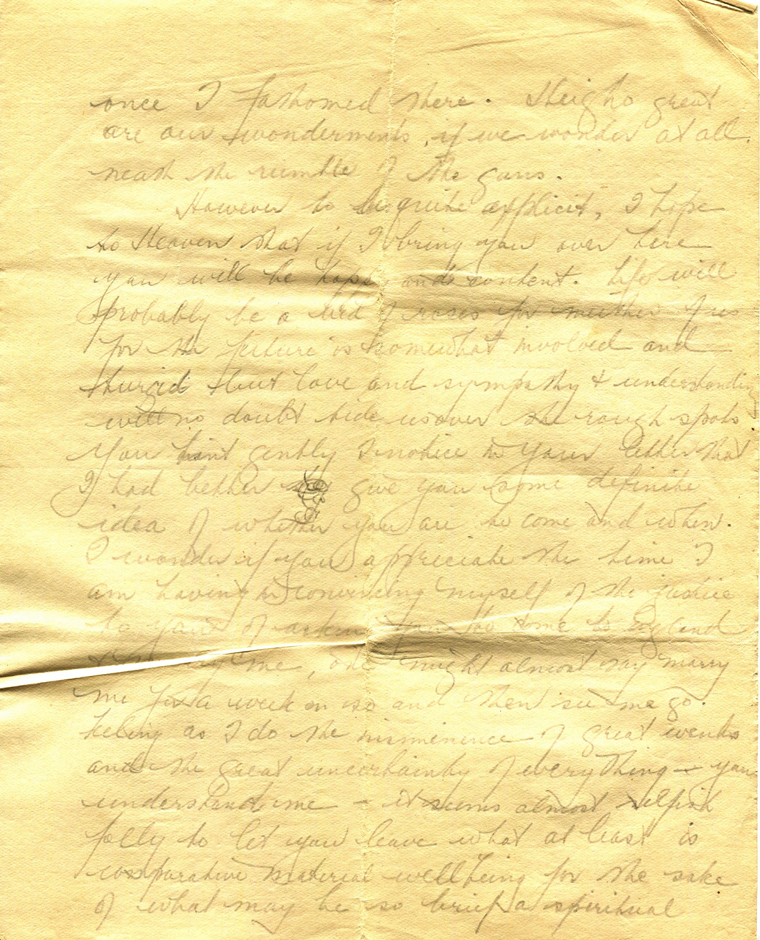 once I fathomed there. Heigho great
are our wonderments, if we wonder at all,
neath the rumble of the guns.
However to be quite explicit, I hope
to Heaven that if I bring you over here
you will be happy and content. Life will
probably be a bed of roses for neither of us
for the future is somewhat involved and
but love and sympathy & understanding
will no doubt tide us over the rough spots
You hint gently I notice in your letter that
I had better give you some definite
idea of whether you are to come and when.
I wonder if you appreciate the time I
am having in convincing myself of the justice
to you of asking you to come to England
me, one might almost say marry
me for a week or so and then see me go.
feeling as I do the imminence of great events
and the great uncertainty of everything - you
understand me - it seems almost selfish
folly to let you leave what at least is
comparative material wellbeing for the sake
of what may be so brief a spiritual